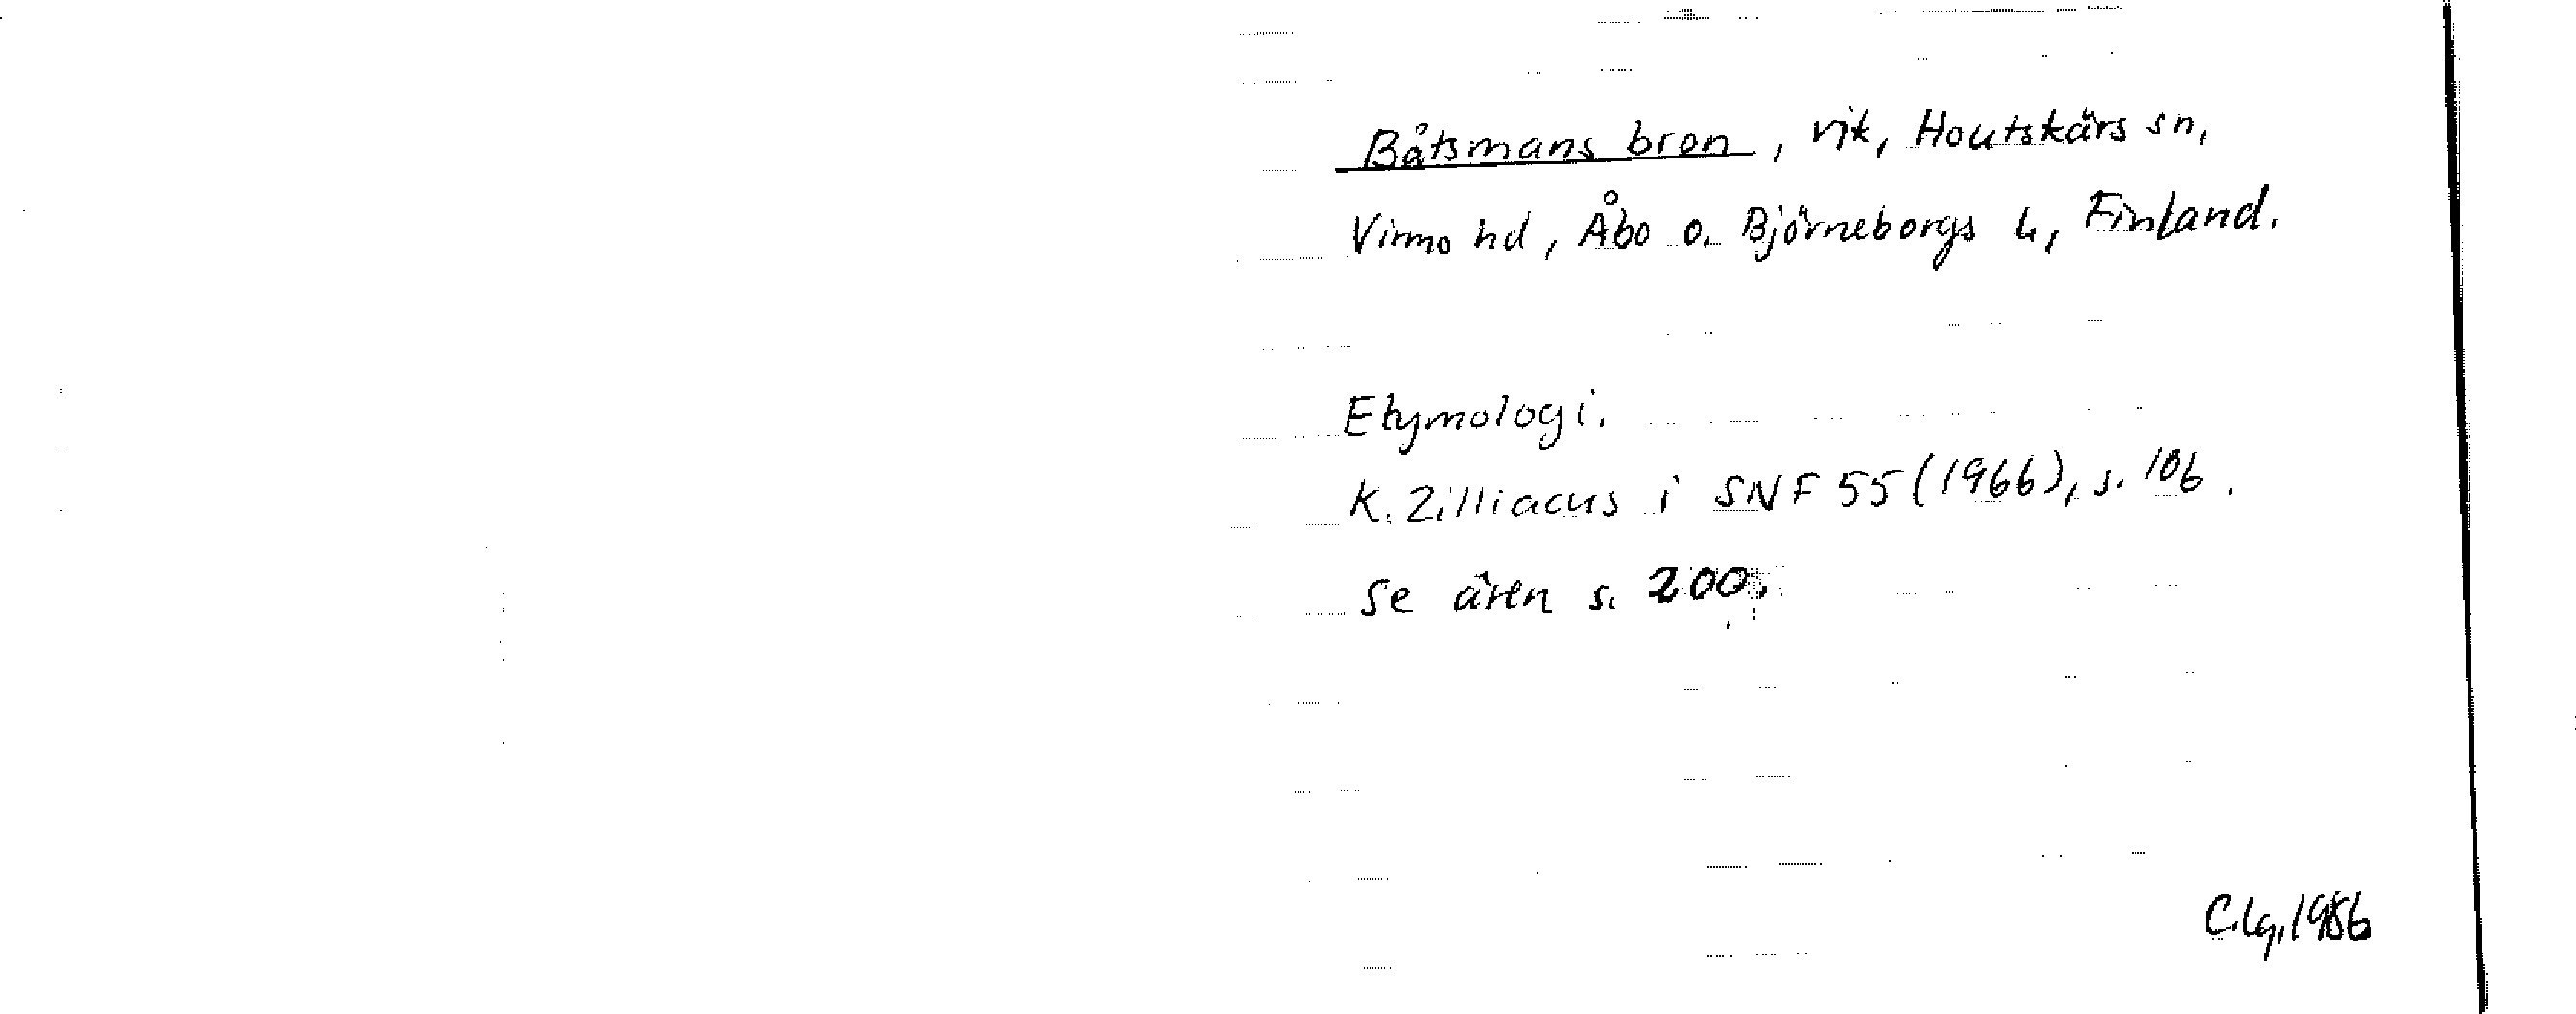 Båtsmans bron, vik, Houtskärs sn,
Virmo hd, Åbo o. Björneborgs l, Finland.
Etymologi.
K. Zilliacus i SNF 55 (1966), s. 106.
Se även s. 200.
C.Lg, 1986